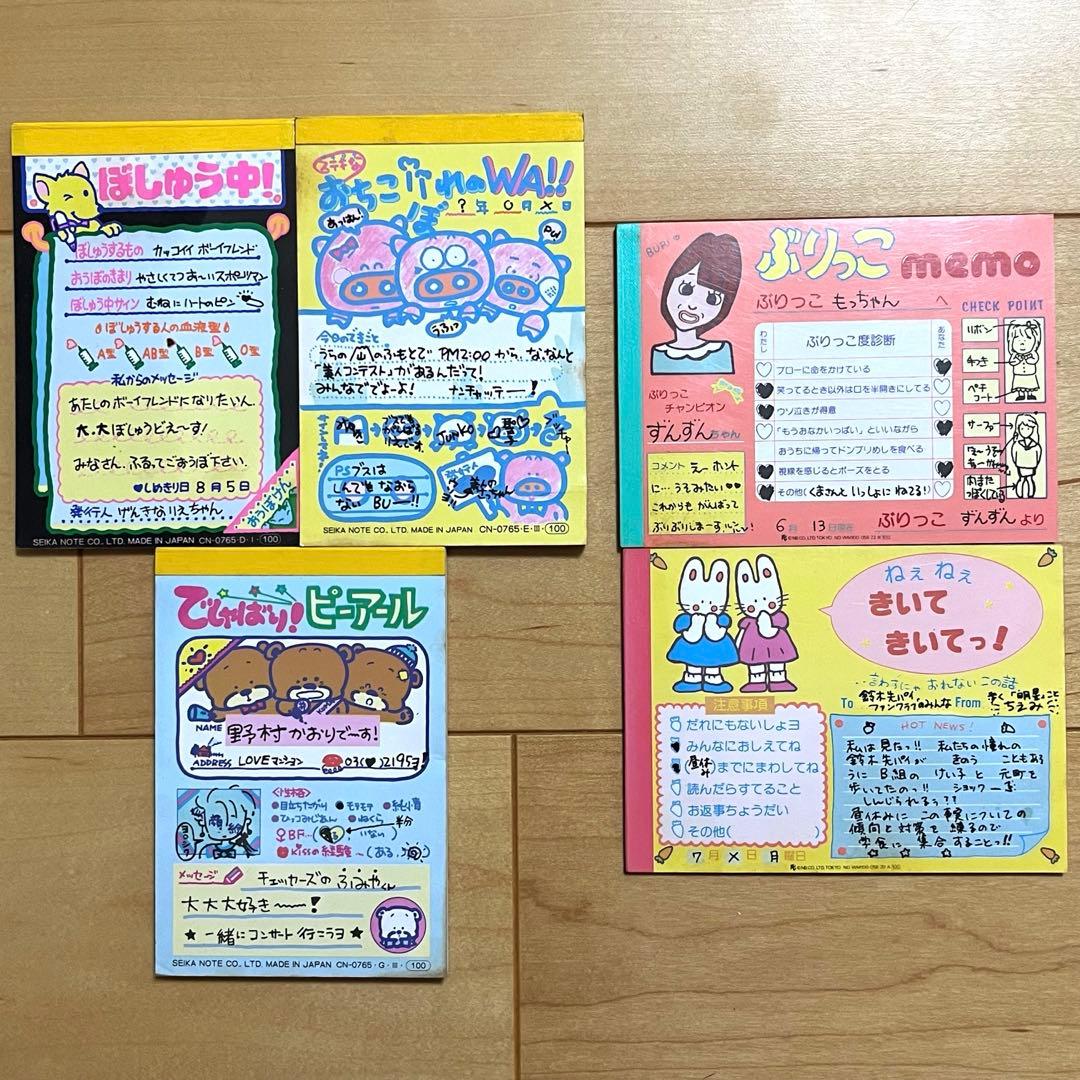 ぼしゅう中!
ぼしゅうするもの カッコイイ ボーイフレンド
おうぼのきまり やさしくてつお〜いスポーツマン
ぼしゅう中サイン むねにハートのピン
ぼしゅうする人の血液型
A型 AB型 B型 O型
私からのメッセージ
あたしのボーイフレンドになりたい人
大.大ぼしゅうどえーす!
みなさん、ふるってごおうぼ下さい。
♥しめきり日 8月5日
発イ行人 げんきなりえちゃん
おうぼけん
SEIKA NOTE CO., LTD. MADE IN JAPAN CN-0765・D・I・100
おちこぼれのWA!!
?年 0月 X日
あっはん!
PU!
うるう?
今日のできごと
うらの 山のふもとで PM2:00から、な、なんと
「美人コンテスト」があるんだって!
みんなででよーよ! ナンチャッテーーー!
JUNKO
PS ブスは
しんでもなおら
ない BUー!!
SEIKA NOTE CO., LTD. MADE IN JAPAN CN-0765・E・III・100
でしゃばり! ピーアール
NAME 野村かおりでーす!
ADDRESS LOVEマンション 03(♥)2195ヨ!
<性格>
●目立ちたがり ●モテモテ ●純情
●ひっこみじあん ●ねくら 半分
♀BF…( いない)
Kissの経験〜(ある. )
ヨロシク
メッセージ チェッカーズの ふみやくん
大大大好き〜〜!
★一緒にコンサート行こうヨ★
SEIKA NOTE CO., LTD. MADE IN JAPAN CN-0765・G・III・100
BURI♡
ぶりっこ memo
ぶりっこ もっちゃん へ
CHECK POINT
わたし ぶりっこ度診断 あなた
ブローに命をかけている
笑ってるとき以外は口を半開きにしてる
ウソ泣きが得意
「もうおなかいっぱい」といいながら
おうちに帰ってドンブリめしを食べる
視線を感じるとポーズをとる
その他(くまさんと いっしょに ねてる!)
リボン
ペチコート
ぶりっこ
チャンピオン
ずんずんちゃん
コメント えーホント
に…うそみたい♥♥
これからも がんばって
6月 13日現在
ぶりっこ ずんずん より
©NB CO., LTD. TOKYO
ねぇ ねぇ
きいて
きいてっ!
To 鈴木先パイ ファンクラブのみんな From 歩く「明星」こと ちえみ
注意事項
だれにもないしょヨ
みんなにおしえてね
(昼休み)までにまわしてね
読んだらすてること
お返事ちょうだい
その他( )
7月 X日 月曜日
HOT NEWS!
私は見たっ!! 私たちの憧れの
鈴木先パイが きのう こともあろ
うに B組の けい子と 元町を
歩いてたのっ!! ショックー
しんじられるぅ??
昼休みに この事実についての
傾向と対策を 練るので
学食に 集合 することっ!!
©NB CO., LTD. TOKYO